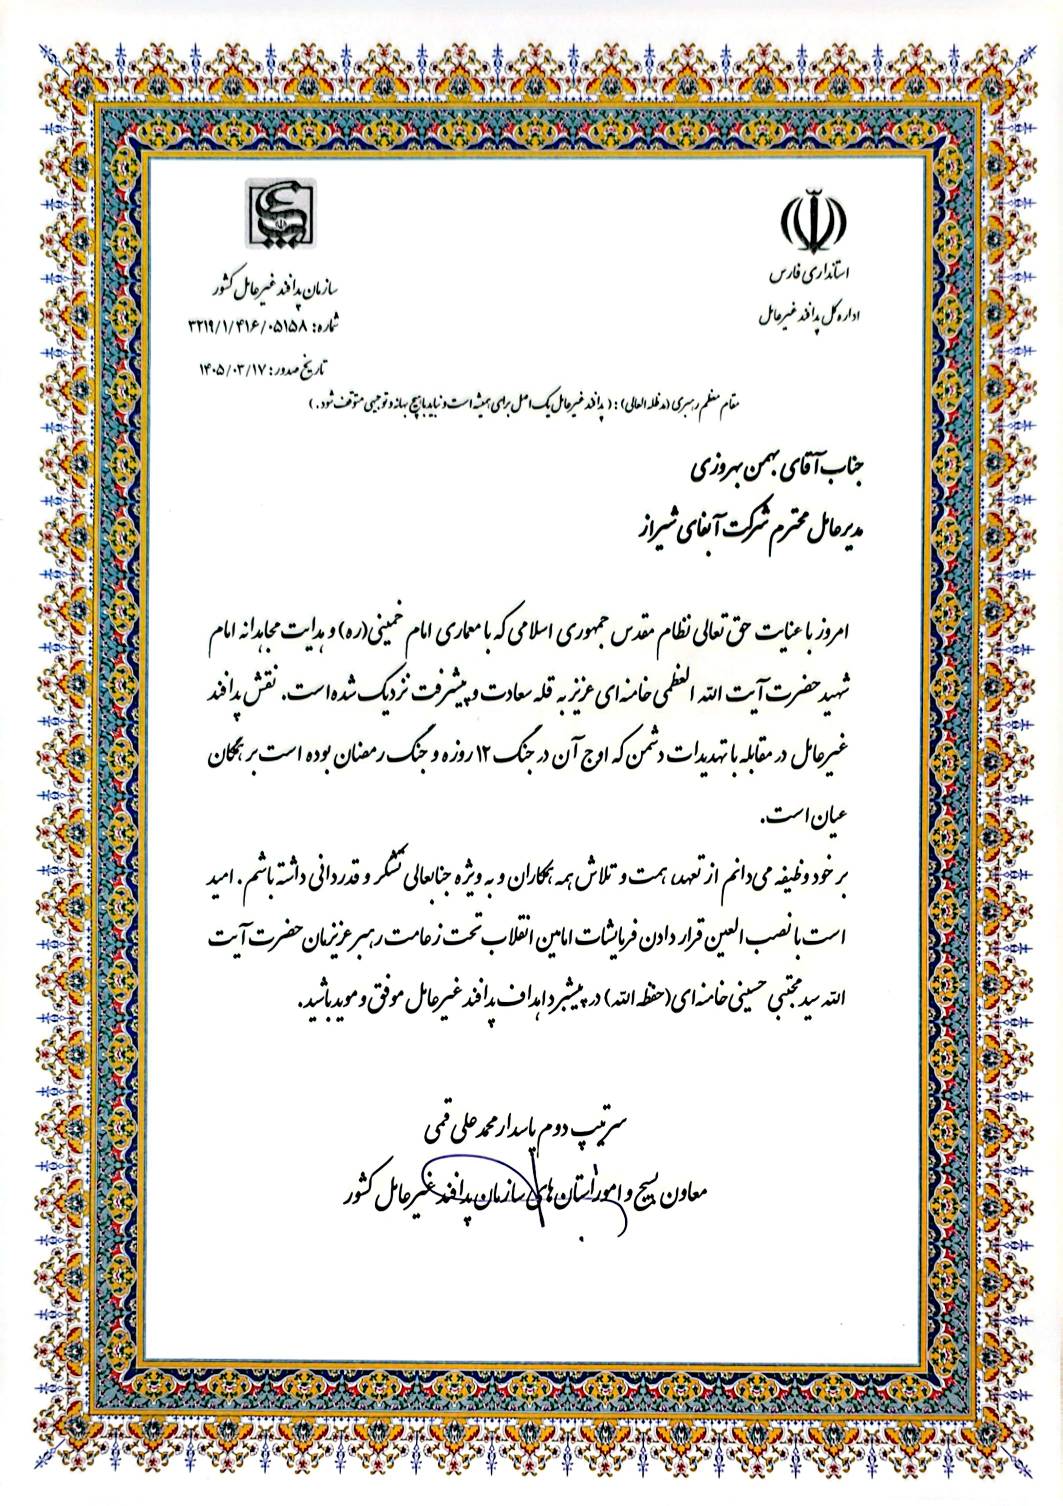 استانداری فارس
اداره کل پدافند غیرعامل
سازمان پدافند غیرعامل کشور
شماره: ۳۲۱۹/۱/۴۱۶/۰۵۱۵۸
تاریخ صدور: ۱۴۰۵/۰۳/۱۷
مقام معظم رهبری (مدظله العالی) : ( پدافند غیرعامل یک اصل برای همیشه است و نباید با هیچ بهانه و توجیهی متوقف شود. )
جناب آقای بهمن بهروزی
مدیرعامل محترم شرکت آبفای شیراز
امروز با عنایت حق تعالی نظام مقدس جمهوری اسلامی که با معماری امام خمینی(ره) و هدایت مجاهدانه امام
شهید حضرت آیت الله العظمی خامنه‌ای عزیز به قله سعادت و پیشرفت نزدیک شده است. نقش پدافند
غیرعامل در مقابله با تهدیدات دشمن که اوج آن در جنگ ۱۲ روزه و جنگ رمضان بوده است بر همگان
عیان است.
بر خود وظیفه می‌دانم از تعهد، همت و تلاش همه همکاران و به ویژه جنابعالی تشکر و قدردانی داشته باشم. امید
است با نصب العین قرار دادن فرمایشات امامین انقلاب تحت زعامت رهبر عزیزمان حضرت آیت
الله سید مجتبی حسینی خامنه‌ای(حفظه الله) در پیشبرد اهداف پدافند غیرعامل موفق و موید باشید.
سرتیپ دوم پاسدار محمد علی قمی
معاون بسیج و امور استان های سازمان پدافند غیرعامل کشور